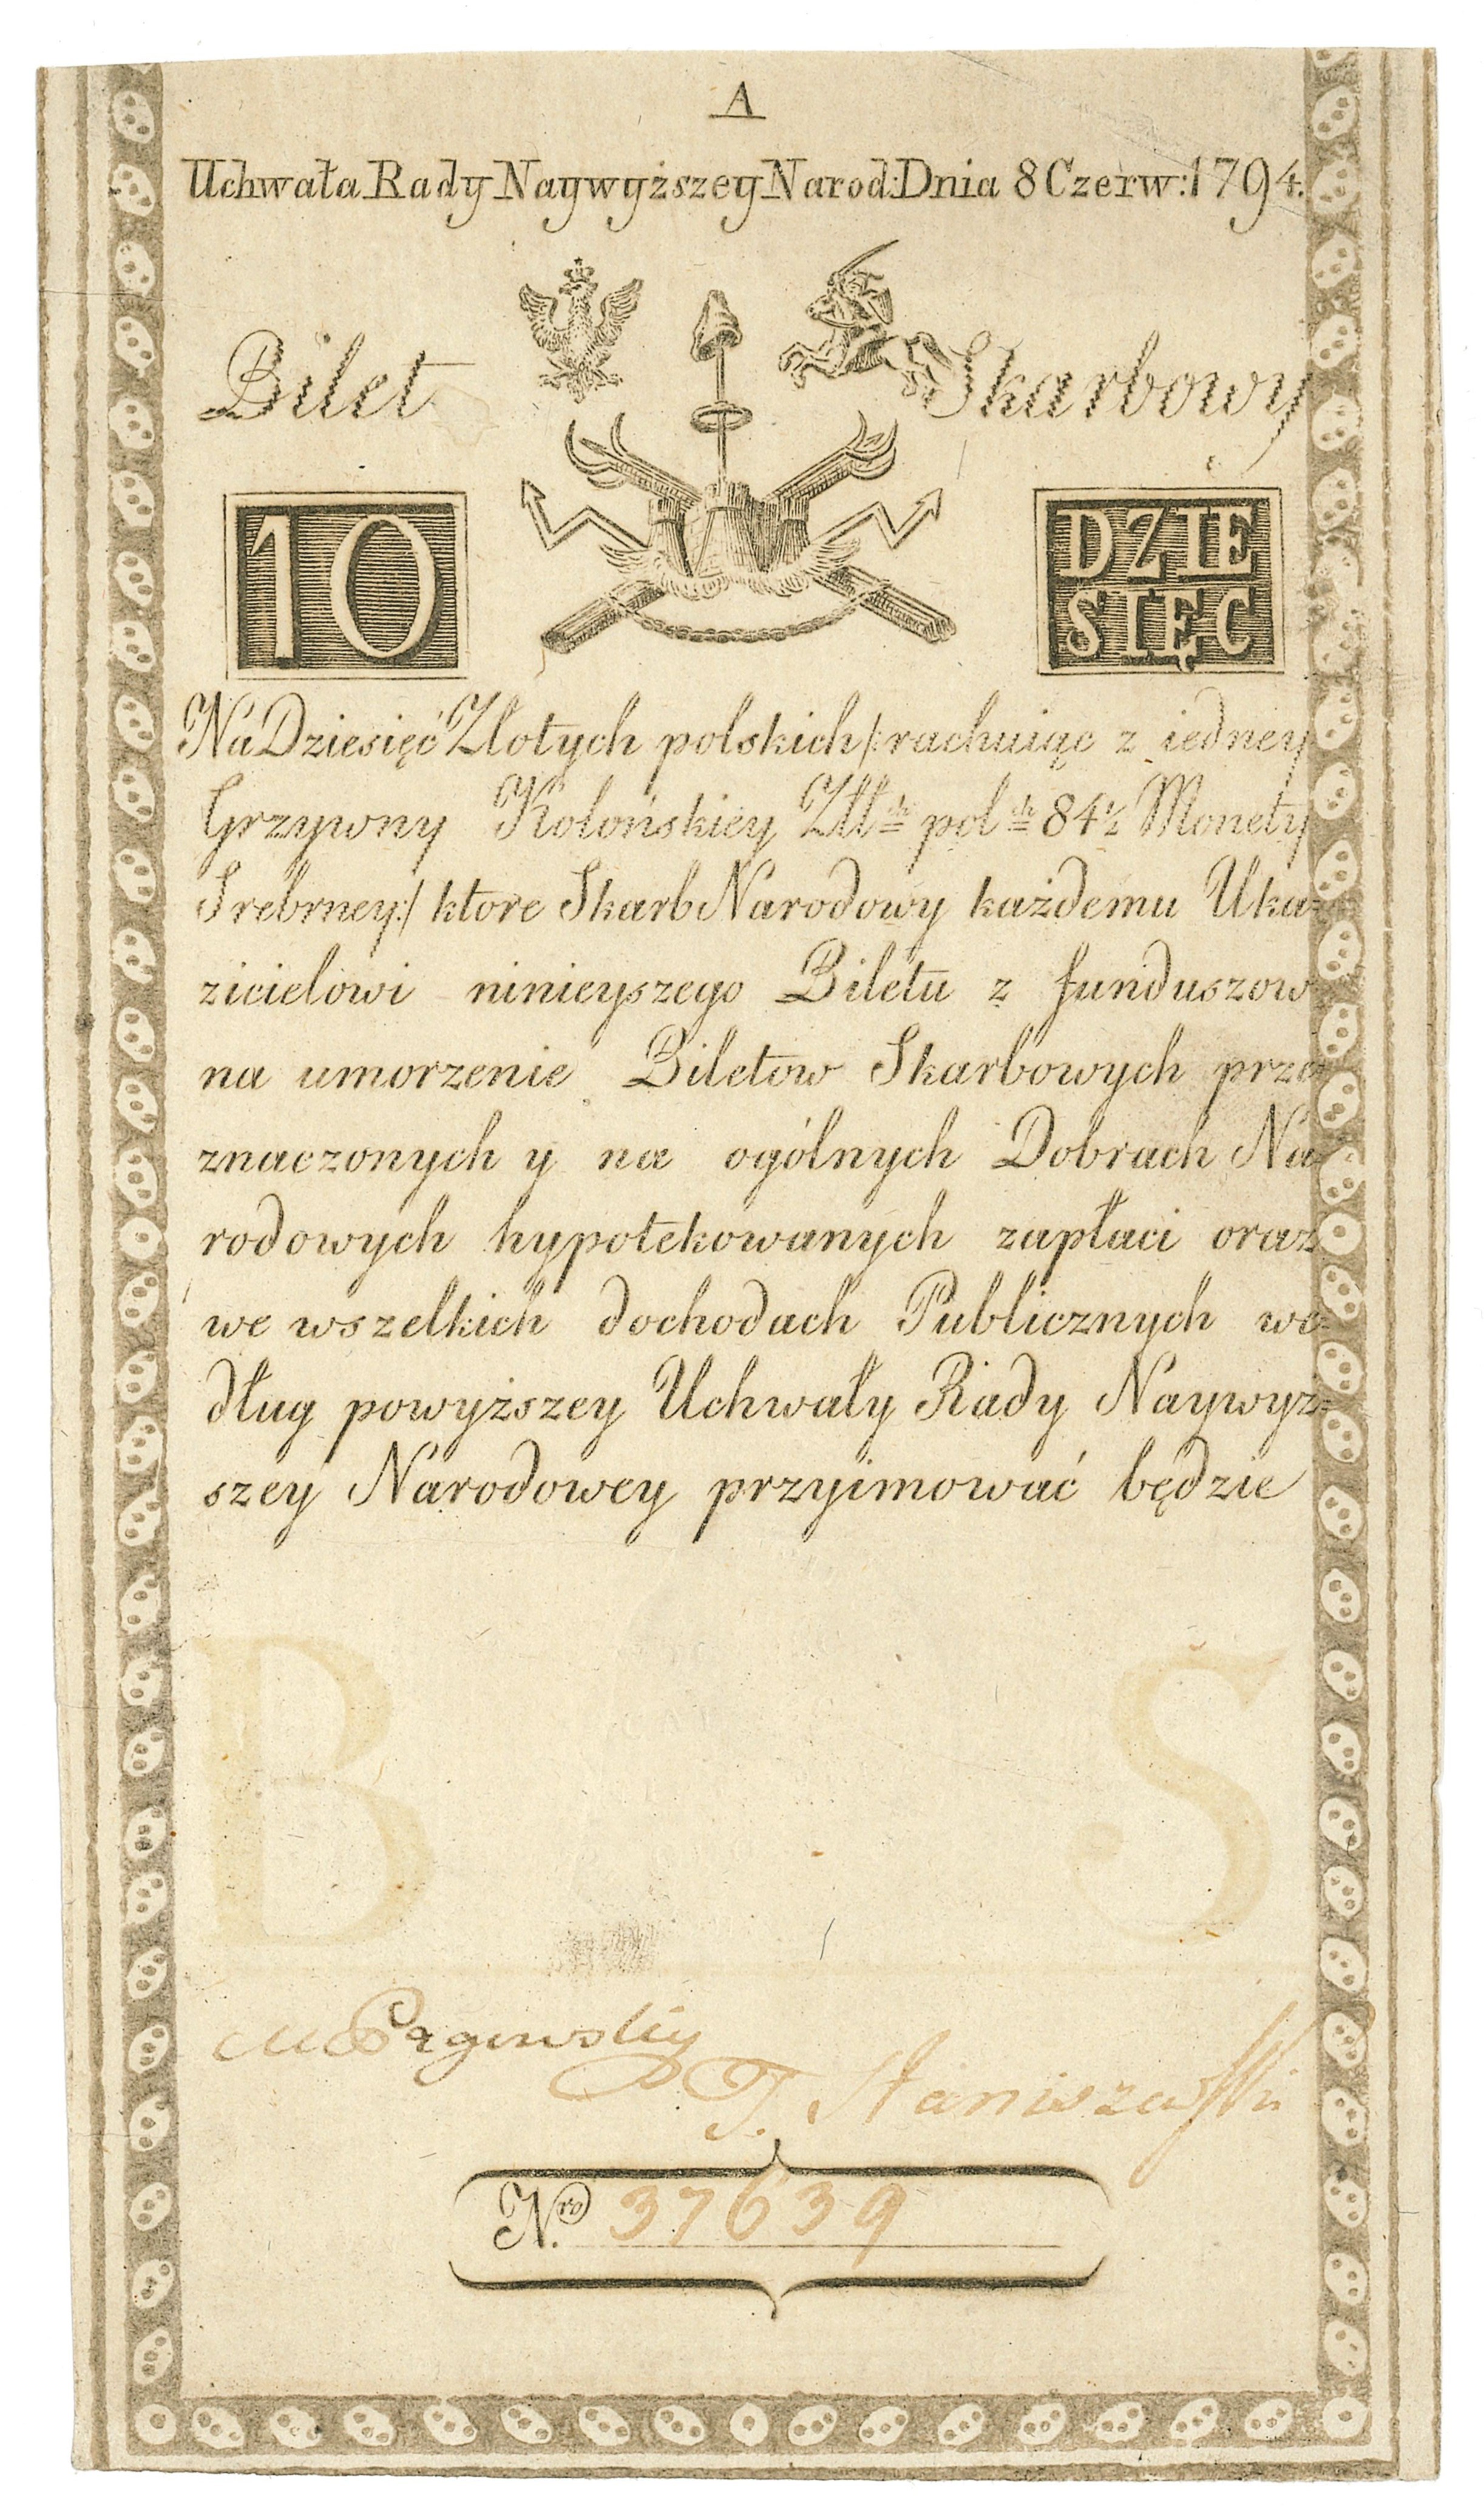 A
Uchwała Rady Naywyższey Narod: Dnia 8 Czerw: 1794.
Bilet Skarbowy
10 DZIE
SIĘC
Na Dziesięć Złotych polskich /: rachuiąc z iedney
Grzywny Kolońskiey Ztł ch pol ch 84½ Monety
Srebrney :/ ktore Skarb Narodowy każdemu Uka=
zicielowi ninieyszego Biletu z funduszow
na umorzenie Biletow Skarbowych prze
znaczonych y na ogólnych Dobrach Na
rodowych hypotekowanych zapłaci oraz
we wszelkich dochodach Publicznych we=
dług powyższey Uchwały Rady Naywyż=
szey Narodowey przyimować będzie
B S
T. Staniszewski
N.ro 37639